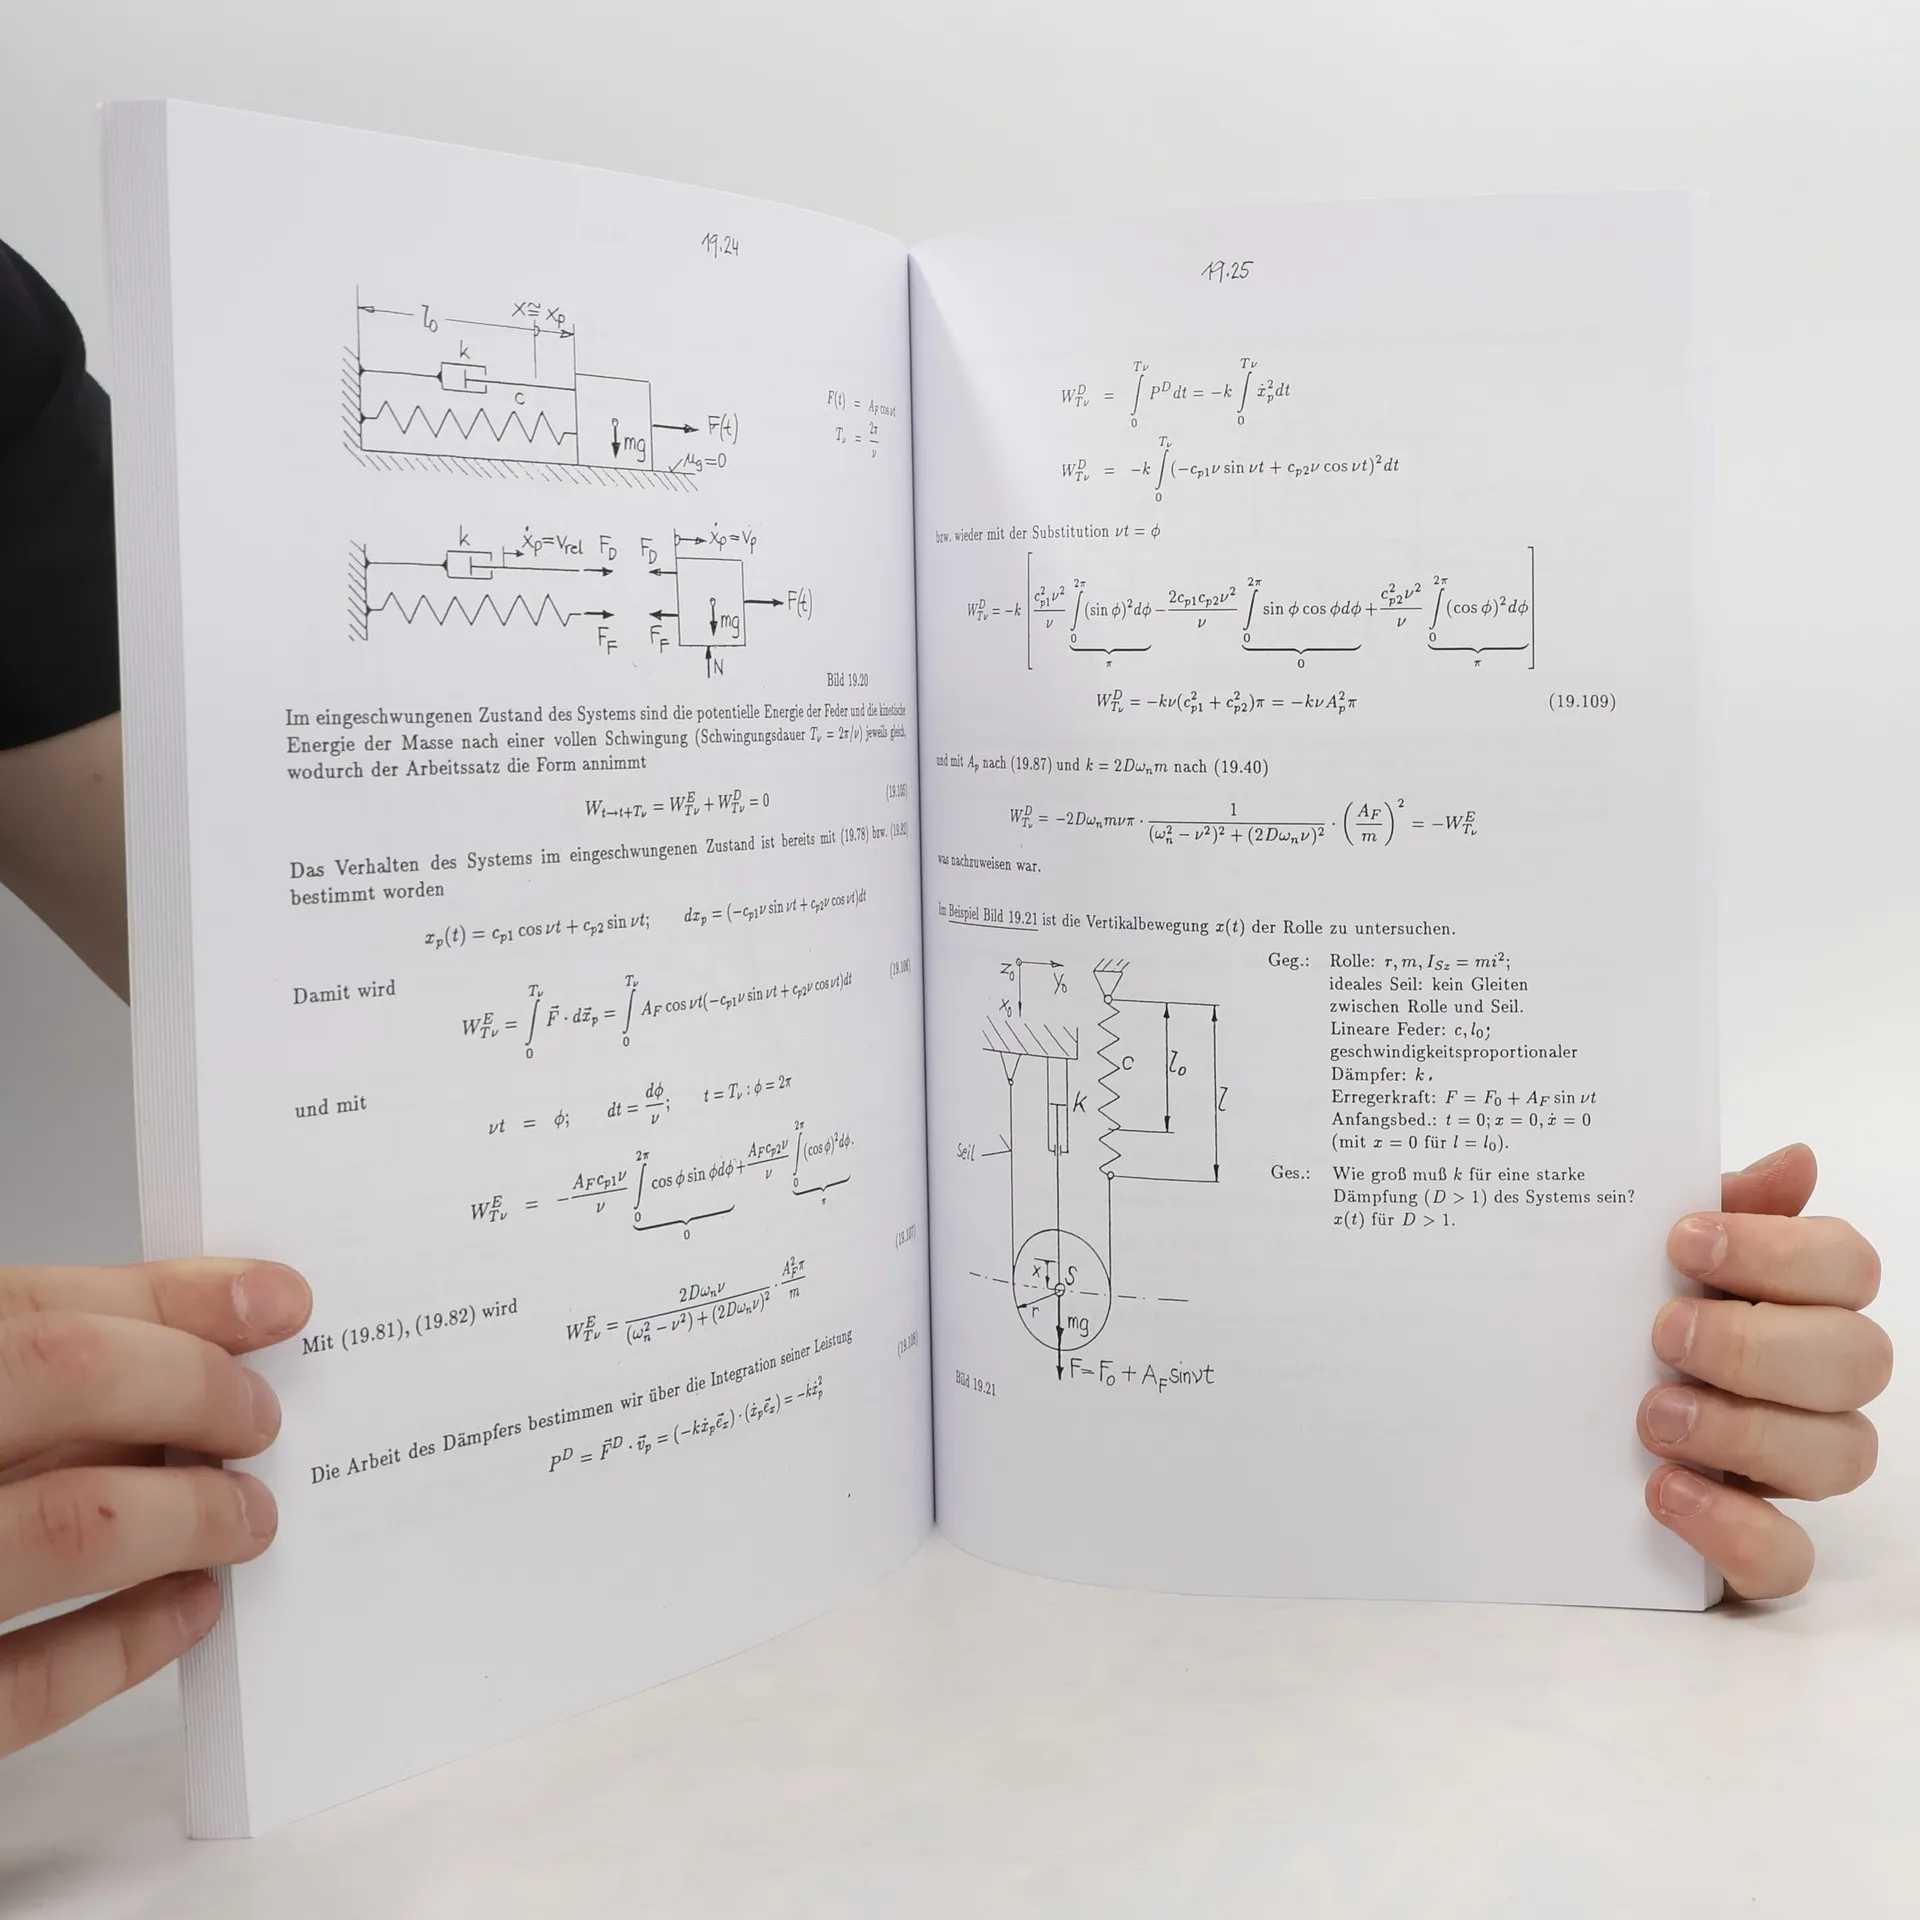 19.24
l₀
x ≅ x_p
k
c
mg
F(t)
μ_g=0
F(t) = A_F cos νt
T_ν = 2π/ν
k
ẋ_p=v_rel
F_D
F_D
ẋ_p=v_p
F(t)
mg
F_F
F_F
N
Bild 19.20
Im eingeschwungenen Zustand des Systems sind die potentielle Energie der Feder und die kinetische
Energie der Masse nach einer vollen Schwingung (Schwingungsdauer T_ν = 2π/ν) jeweils gleich,
wodurch der Arbeitssatz die Form annimmt
W_{t→t+T_ν} = W^E_{Tν} + W^D_{Tν} = 0 (19.105)
Das Verhalten des Systems im eingeschwungenen Zustand ist bereits mit (19.78) bzw. (19.82)
bestimmt worden
x_p(t) = c_{p1} cos νt + c_{p2} sin νt; dx_p = (−c_{p1}ν sin νt + c_{p2}ν cos νt)dt
Damit wird
W^E_{Tν} = ∫_0^{Tν} F⃗ · dx⃗_p = ∫_0^{Tν} A_F cos νt(−c_{p1}ν sin νt + c_{p2}ν cos νt)dt (19.106)
und mit
νt = ϕ; dt = dϕ/ν; t = T_ν : ϕ = 2π
W^E_{Tν} = −(A_F c_{p1}ν)/ν ∫_0^{2π} cos ϕ sin ϕdϕ + (A_F c_{p2}ν)/ν ∫_0^{2π} (cos ϕ)²dϕ.
0 π
(19.107)
Mit (19.81), (19.82) wird
W^E_{Tν} = 2Dω_nν / ((ω_n² − ν²) + (2Dω_nν)²) · A_F²π/m
(19.108)
Die Arbeit des Dämpfers bestimmen wir über die Integration seiner Leistung
P^D = F⃗^D · v⃗_p = (−kẋ_p e⃗_x) · (ẋ_p e⃗_x) = −kẋ_p²
19.25
W^D_{Tν} = ∫_0^{Tν} P^D dt = −k ∫_0^{Tν} ẋ_p² dt
W^D_{Tν} = −k ∫_0^{Tν} (−c_{p1}ν sin νt + c_{p2}ν cos νt)² dt
bzw. wieder mit der Substitution νt = ϕ
W^D_{Tν} = −k [ (c²_{p1}ν²)/ν ∫_0^{2π} (sin ϕ)²dϕ − (2c_{p1}c_{p2}ν²)/ν ∫_0^{2π} sin ϕ cos ϕdϕ + (c²_{p2}ν²)/ν ∫_0^{2π} (cos ϕ)²dϕ ]
π 0 π
W^D_{Tν} = −kν(c²_{p1} + c²_{p2})π = −kνA_p²π (19.109)
und mit A_p nach (19.87) und k = 2Dω_n m nach (19.40)
W^D_{Tν} = −2Dω_n mνπ · 1/((ω_n² − ν²)² + (2Dω_nν)²) · (A_F/m)² = −W^E_{Tν}
was nachzuweisen war.
Im Beispiel Bild 19.21 ist die Vertikalbewegung x(t) der Rolle zu untersuchen.
z₀
y₀
x₀
c
l₀
k
l
Seil
x
S
r
mg
F=F₀ + A_F sinνt
Bild 19.21
Geg.: Rolle: r, m, I_{Sz} = mi²;
ideales Seil: kein Gleiten
zwischen Rolle und Seil.
Lineare Feder: c, l₀;
geschwindigkeitsproportionaler
Dämpfer: k.
Erregerkraft: F = F₀ + A_F sin νt
Anfangsbed.: t = 0; x = 0, ẋ = 0
(mit x = 0 für l = l₀).
Ges.: Wie groß muß k für eine starke
Dämpfung (D > 1) des Systems sein?
x(t) für D > 1.